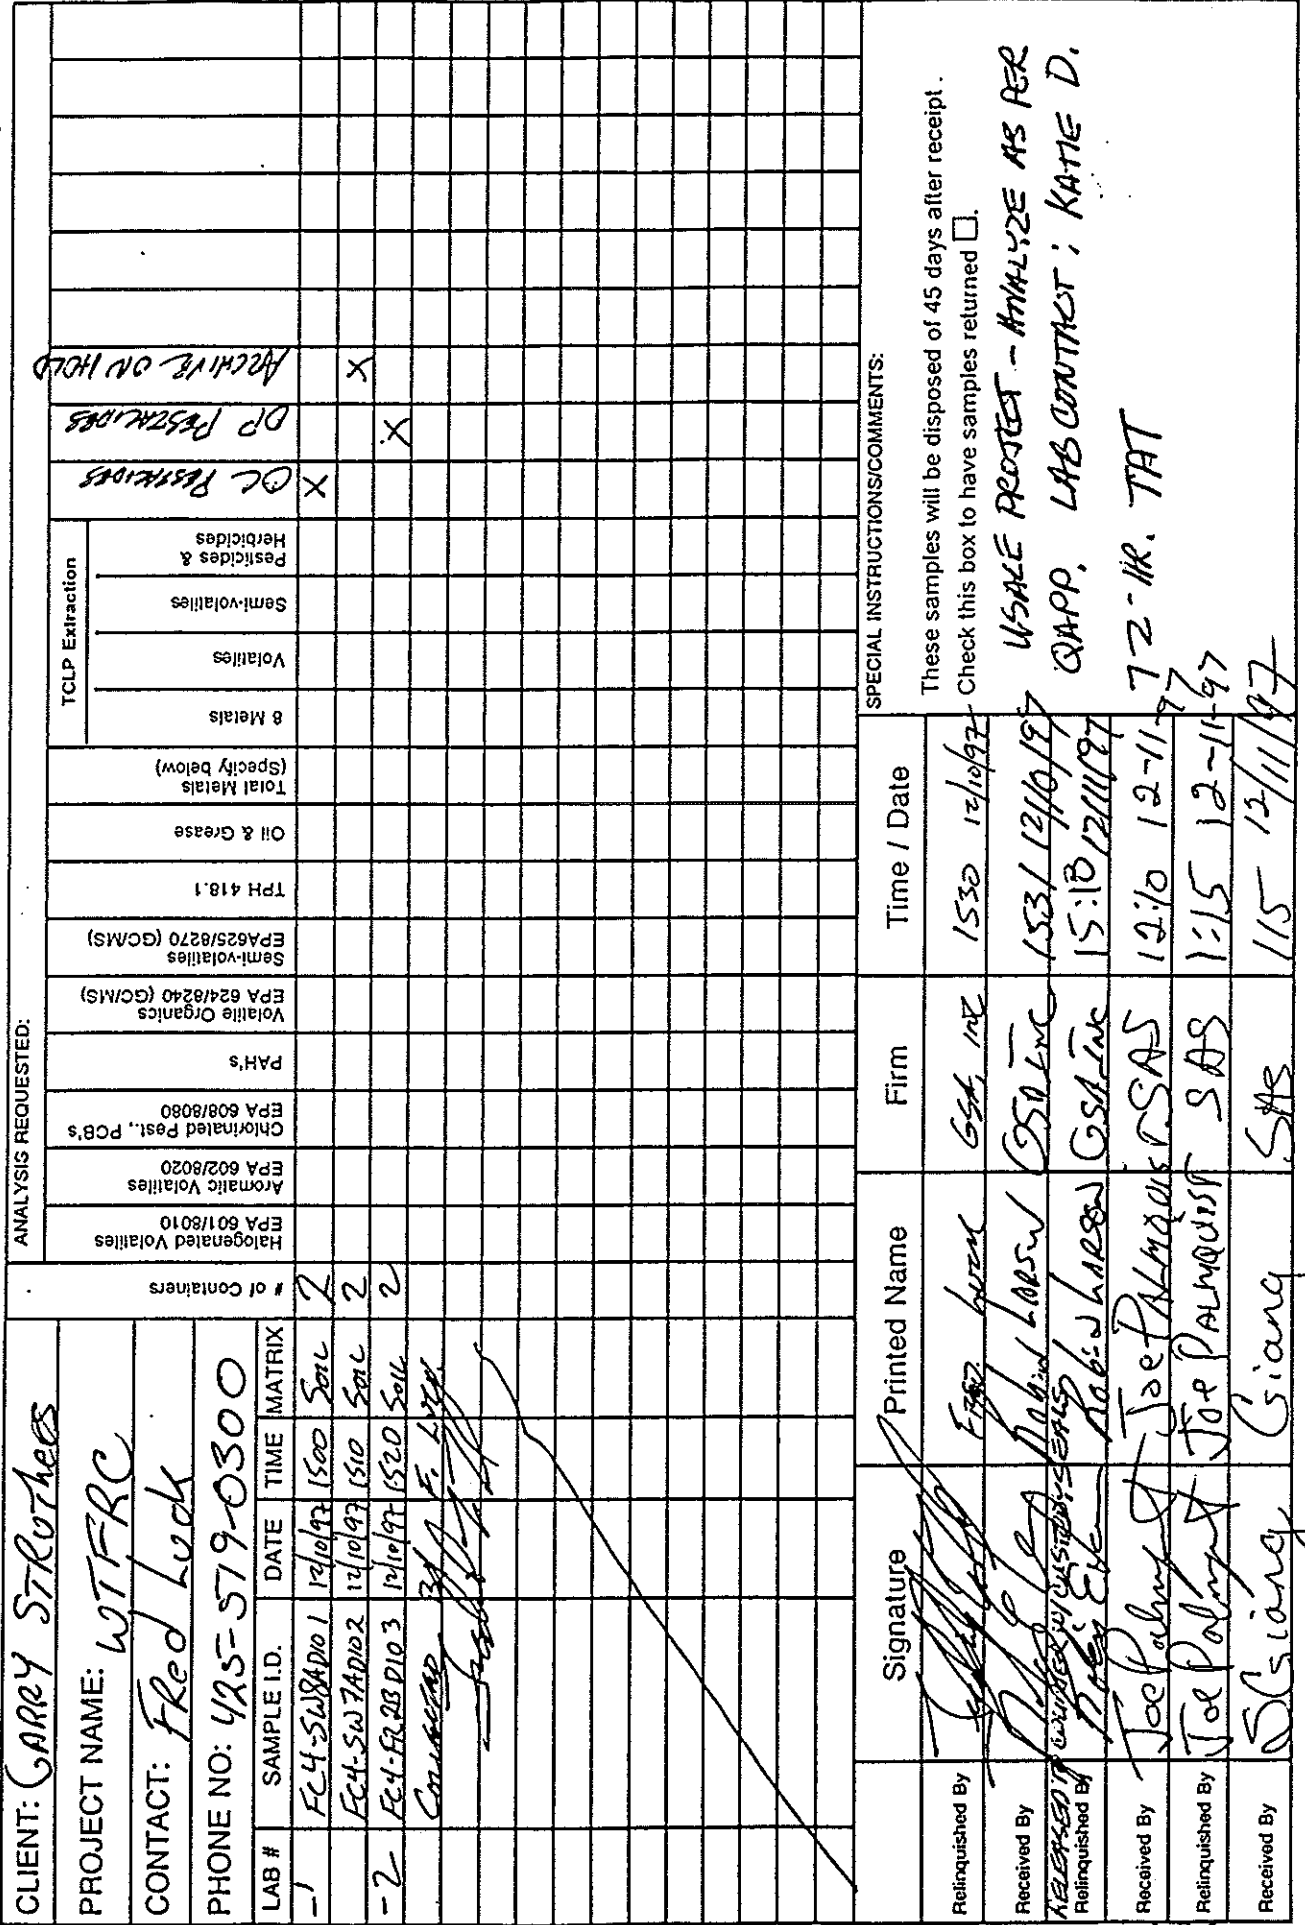 CLIENT: GARRY STRUTHERS
PROJECT NAME: WTFRC
CONTACT: FRed Luck
PHONE NO: 425-519-0300
ANALYSIS REQUESTED:
TCLP Extraction
LAB # SAMPLE I.D. DATE TIME MATRIX # of Containers
Halogenated Volatiles
EPA 601/8010
Aromatic Volatiles
EPA 602/8020
Chlorinated Pest., PCB's
EPA 608/8080
PAH's
Volatile Organics
EPA 624/8240 (GC/MS)
Semi-volatiles
EPA625/8270 (GC/MS)
TPH 418.1
Oil & Grease
Total Metals
(Specify below)
8 Metals
Volatiles
Semi-volatiles
Pesticides &
Herbicides
OC PESTICIDES
OP PESTICIDES
ARCHIVE ON HOLD
-1 FC4-SW8AD101 12/10/97 1500 SOIL 2 X
FC4-SW7AD102 12/10/97 1510 SOIL 2 X
-2 FC4-FL2BD103 12/10/97 1520 SOIL 2 X
F. Luck
Signature Printed Name Firm Time / Date
Relinquished By FRED Luck GSA, INC 1530 12/10/97
Received By Robin LARSON GSA INC 1531 12/10/97
RELEASED TO COURIER W/ CUSTODY SEALS
Relinquished By Robin LARSON GSA INC 15:10 12/11/97
Received By Joe Palmquist Joe PALMQUIST SAS 12:10 12-11-97
Relinquished By Joe Palmquist Joe PALMQUIST SAS 1:15 12-11-97
Received By SGiang Giang SAS 115 12/11/97
SPECIAL INSTRUCTIONS/COMMENTS:
These samples will be disposed of 45 days after receipt.
Check this box to have samples returned
USACE PROJECT - ANALYZE AS PER
QAPP. LAB CONTACT: KATIE D.
72-HR. TAT